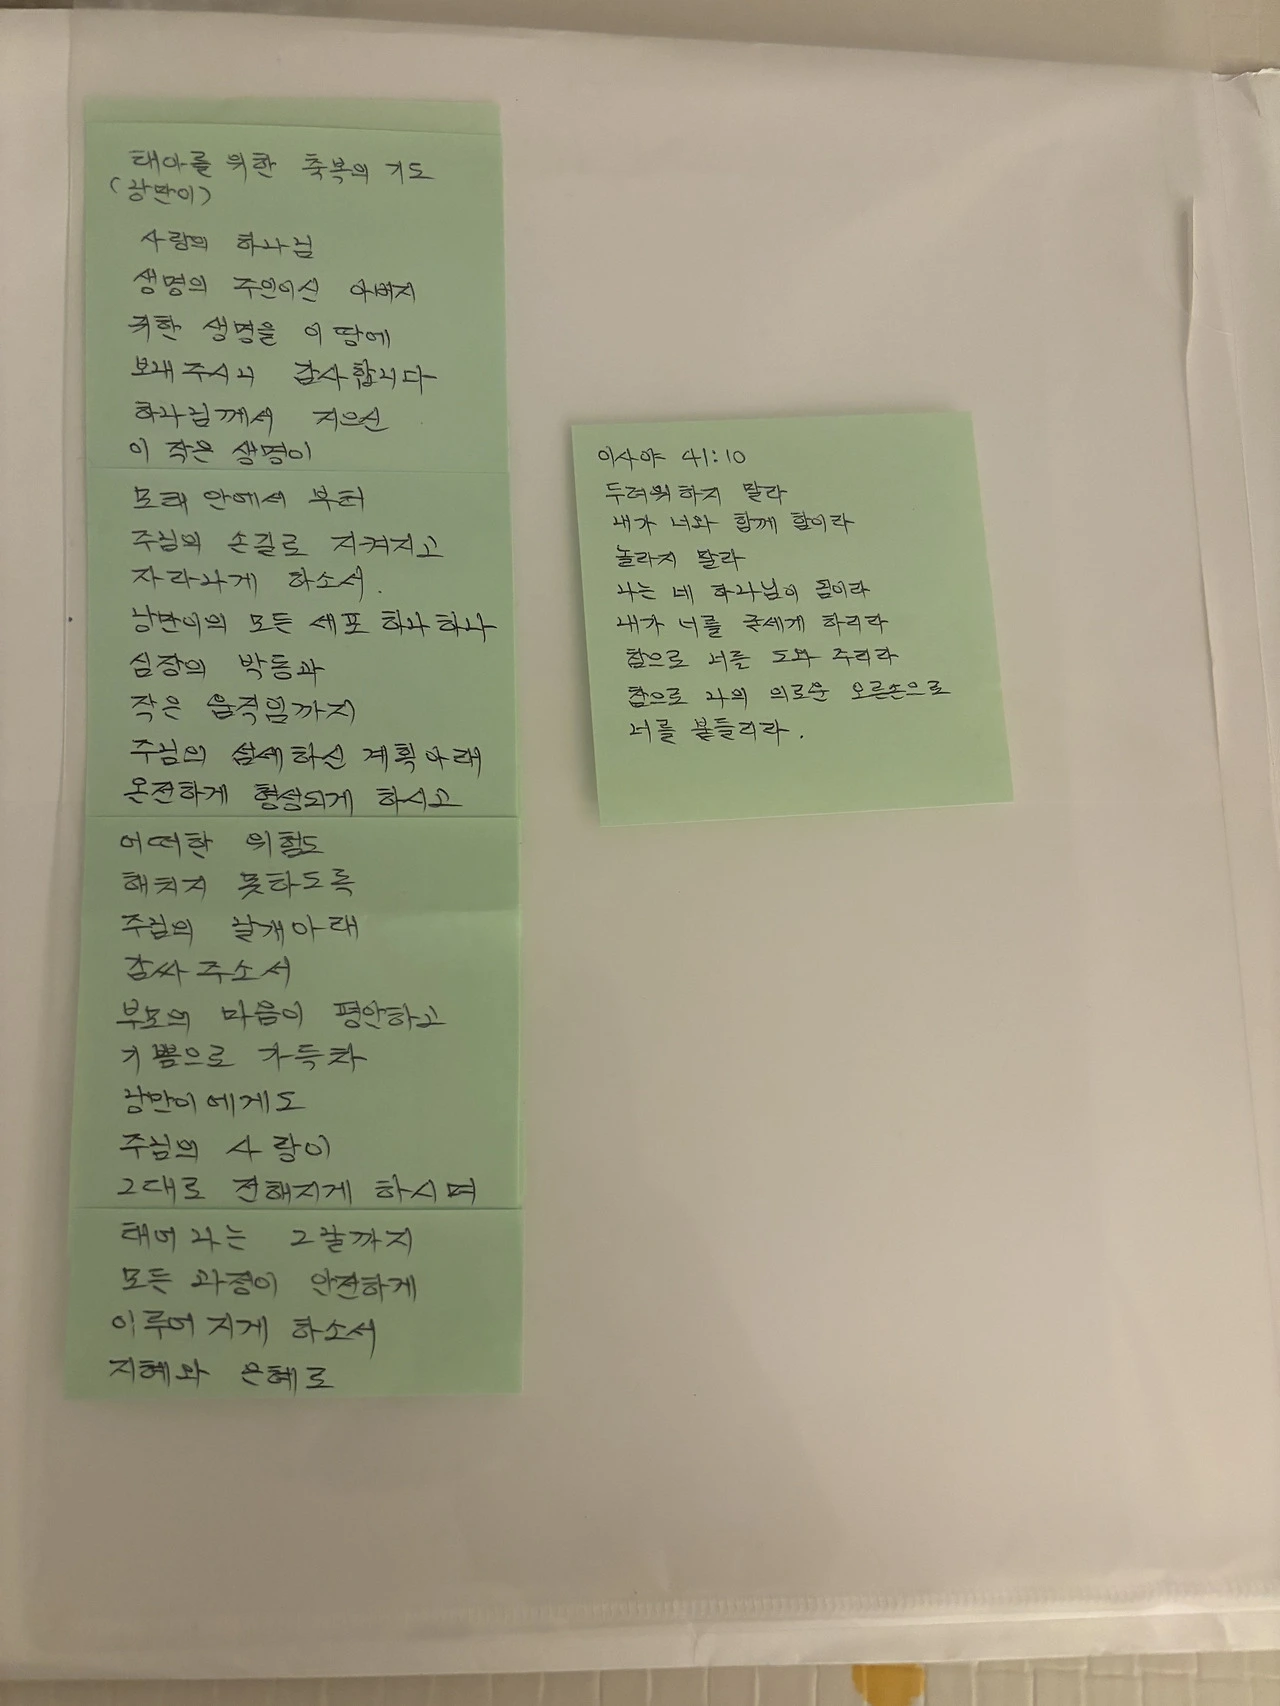 태아를 위한 축복의 기도
(낭만이)
사랑의 하나님
생명의 주인이신 아버지
귀한 생명을 이 땅에
보내주시니 감사합니다
하나님께서 지으신
이 작은 생명이
모태 안에서 부터
주님의 손길로 지켜지고
자라나게 하소서.
낭만이의 모든 세포 하나하나
심장의 박동과
작은 움직임까지
주님의 섬세하신 계획아래
온전하게 형성되게 하시고
어떠한 위험도
해치지 못하도록
주님의 날개아래
감싸주소서
부모의 마음이 평안하고
기쁨으로 가득차
낭만이에게도
주님의 사랑이
그대로 전해지게 하시며
태어나는 그날까지
모든 과정이 안전하게
이루어지게 하소서
지혜와 은혜로
이사야 41:10
두려워하지 말라
내가 너와 함께 함이라
놀라지 말라
나는 네 하나님이 됨이라
내가 너를 굳세게 하리라
참으로 너를 도와 주리라
참으로 나의 의로운 오른손으로
너를 붙들리라.